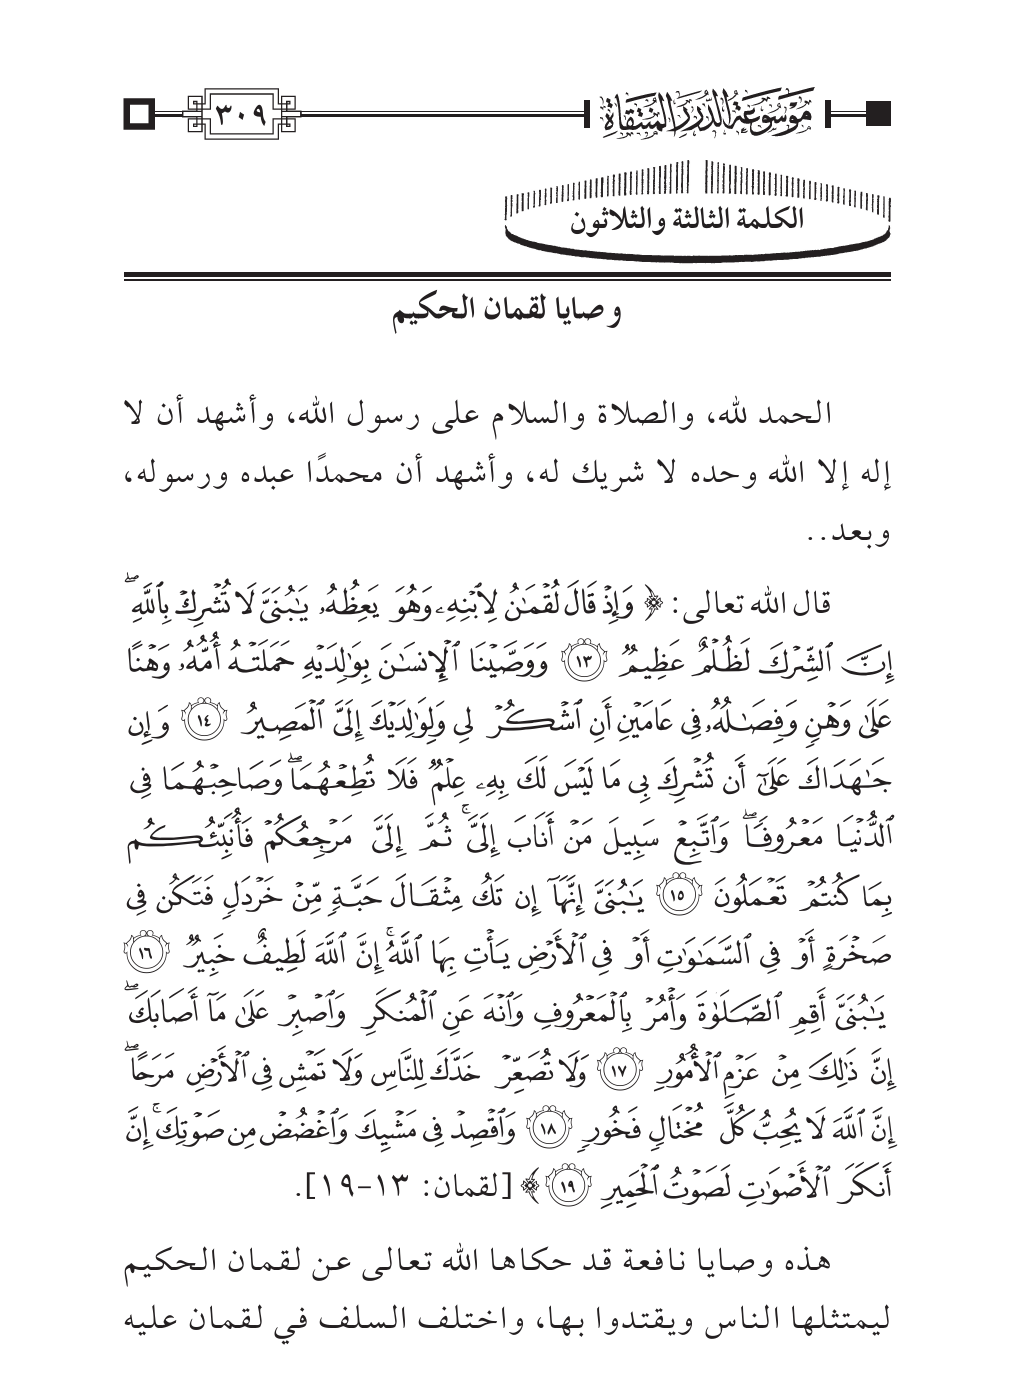 موسوعة الدرر المنتقاة
٣٠٩
الكلمة الثالثة والثلاثون
وصايا لقمان الحكيم
الحمد لله، والصلاة والسلام على رسول الله، وأشهد أن لا
إله إلا الله وحده لا شريك له، وأشهد أن محمدًا عبده ورسوله،
وبعد..
قال الله تعالى: ﴿ وَإِذْ قَالَ لُقْمَٰنُ لِٱبْنِهِۦ وَهُوَ يَعِظُهُۥ يَٰبُنَىَّ لَا تُشْرِكْ بِٱللَّهِۖ
إِنَّ ٱلشِّرْكَ لَظُلْمٌ عَظِيمٌ ١٣ وَوَصَّيْنَا ٱلْإِنسَٰنَ بِوَٰلِدَيْهِ حَمَلَتْهُ أُمُّهُۥ وَهْنًا
عَلَىٰ وَهْنٍ وَفِصَٰلُهُۥ فِى عَامَيْنِ أَنِ ٱشْكُرْ لِى وَلِوَٰلِدَيْكَ إِلَىَّ ٱلْمَصِيرُ ١٤ وَإِن
جَٰهَدَاكَ عَلَىٰٓ أَن تُشْرِكَ بِى مَا لَيْسَ لَكَ بِهِۦ عِلْمٌ فَلَا تُطِعْهُمَاۖ وَصَاحِبْهُمَا فِى
ٱلدُّنْيَا مَعْرُوفًاۖ وَٱتَّبِعْ سَبِيلَ مَنْ أَنَابَ إِلَىَّۚ ثُمَّ إِلَىَّ مَرْجِعُكُمْ فَأُنَبِّئُكُم
بِمَا كُنتُمْ تَعْمَلُونَ ١٥ يَٰبُنَىَّ إِنَّهَآ إِن تَكُ مِثْقَالَ حَبَّةٍ مِّنْ خَرْدَلٍ فَتَكُن فِى
صَخْرَةٍ أَوْ فِى ٱلسَّمَٰوَٰتِ أَوْ فِى ٱلْأَرْضِ يَأْتِ بِهَا ٱللَّهُۚ إِنَّ ٱللَّهَ لَطِيفٌ خَبِيرٌ ١٦
يَٰبُنَىَّ أَقِمِ ٱلصَّلَوٰةَ وَأْمُرْ بِٱلْمَعْرُوفِ وَٱنْهَ عَنِ ٱلْمُنكَرِ وَٱصْبِرْ عَلَىٰ مَآ أَصَابَكَۖ
إِنَّ ذَٰلِكَ مِنْ عَزْمِ ٱلْأُمُورِ ١٧ وَلَا تُصَعِّرْ خَدَّكَ لِلنَّاسِ وَلَا تَمْشِ فِى ٱلْأَرْضِ مَرَحًاۖ
إِنَّ ٱللَّهَ لَا يُحِبُّ كُلَّ مُخْتَالٍ فَخُورٍ ١٨ وَٱقْصِدْ فِى مَشْيِكَ وَٱغْضُضْ مِن صَوْتِكَۚ إِنَّ
أَنكَرَ ٱلْأَصْوَٰتِ لَصَوْتُ ٱلْحَمِيرِ ١٩ ﴾ [لقمان: ١٣-١٩].
هذه وصايا نافعة قد حكاها الله تعالى عن لقمان الحكيم
ليمتثلها الناس ويقتدوا بها، واختلف السلف في لقمان عليه